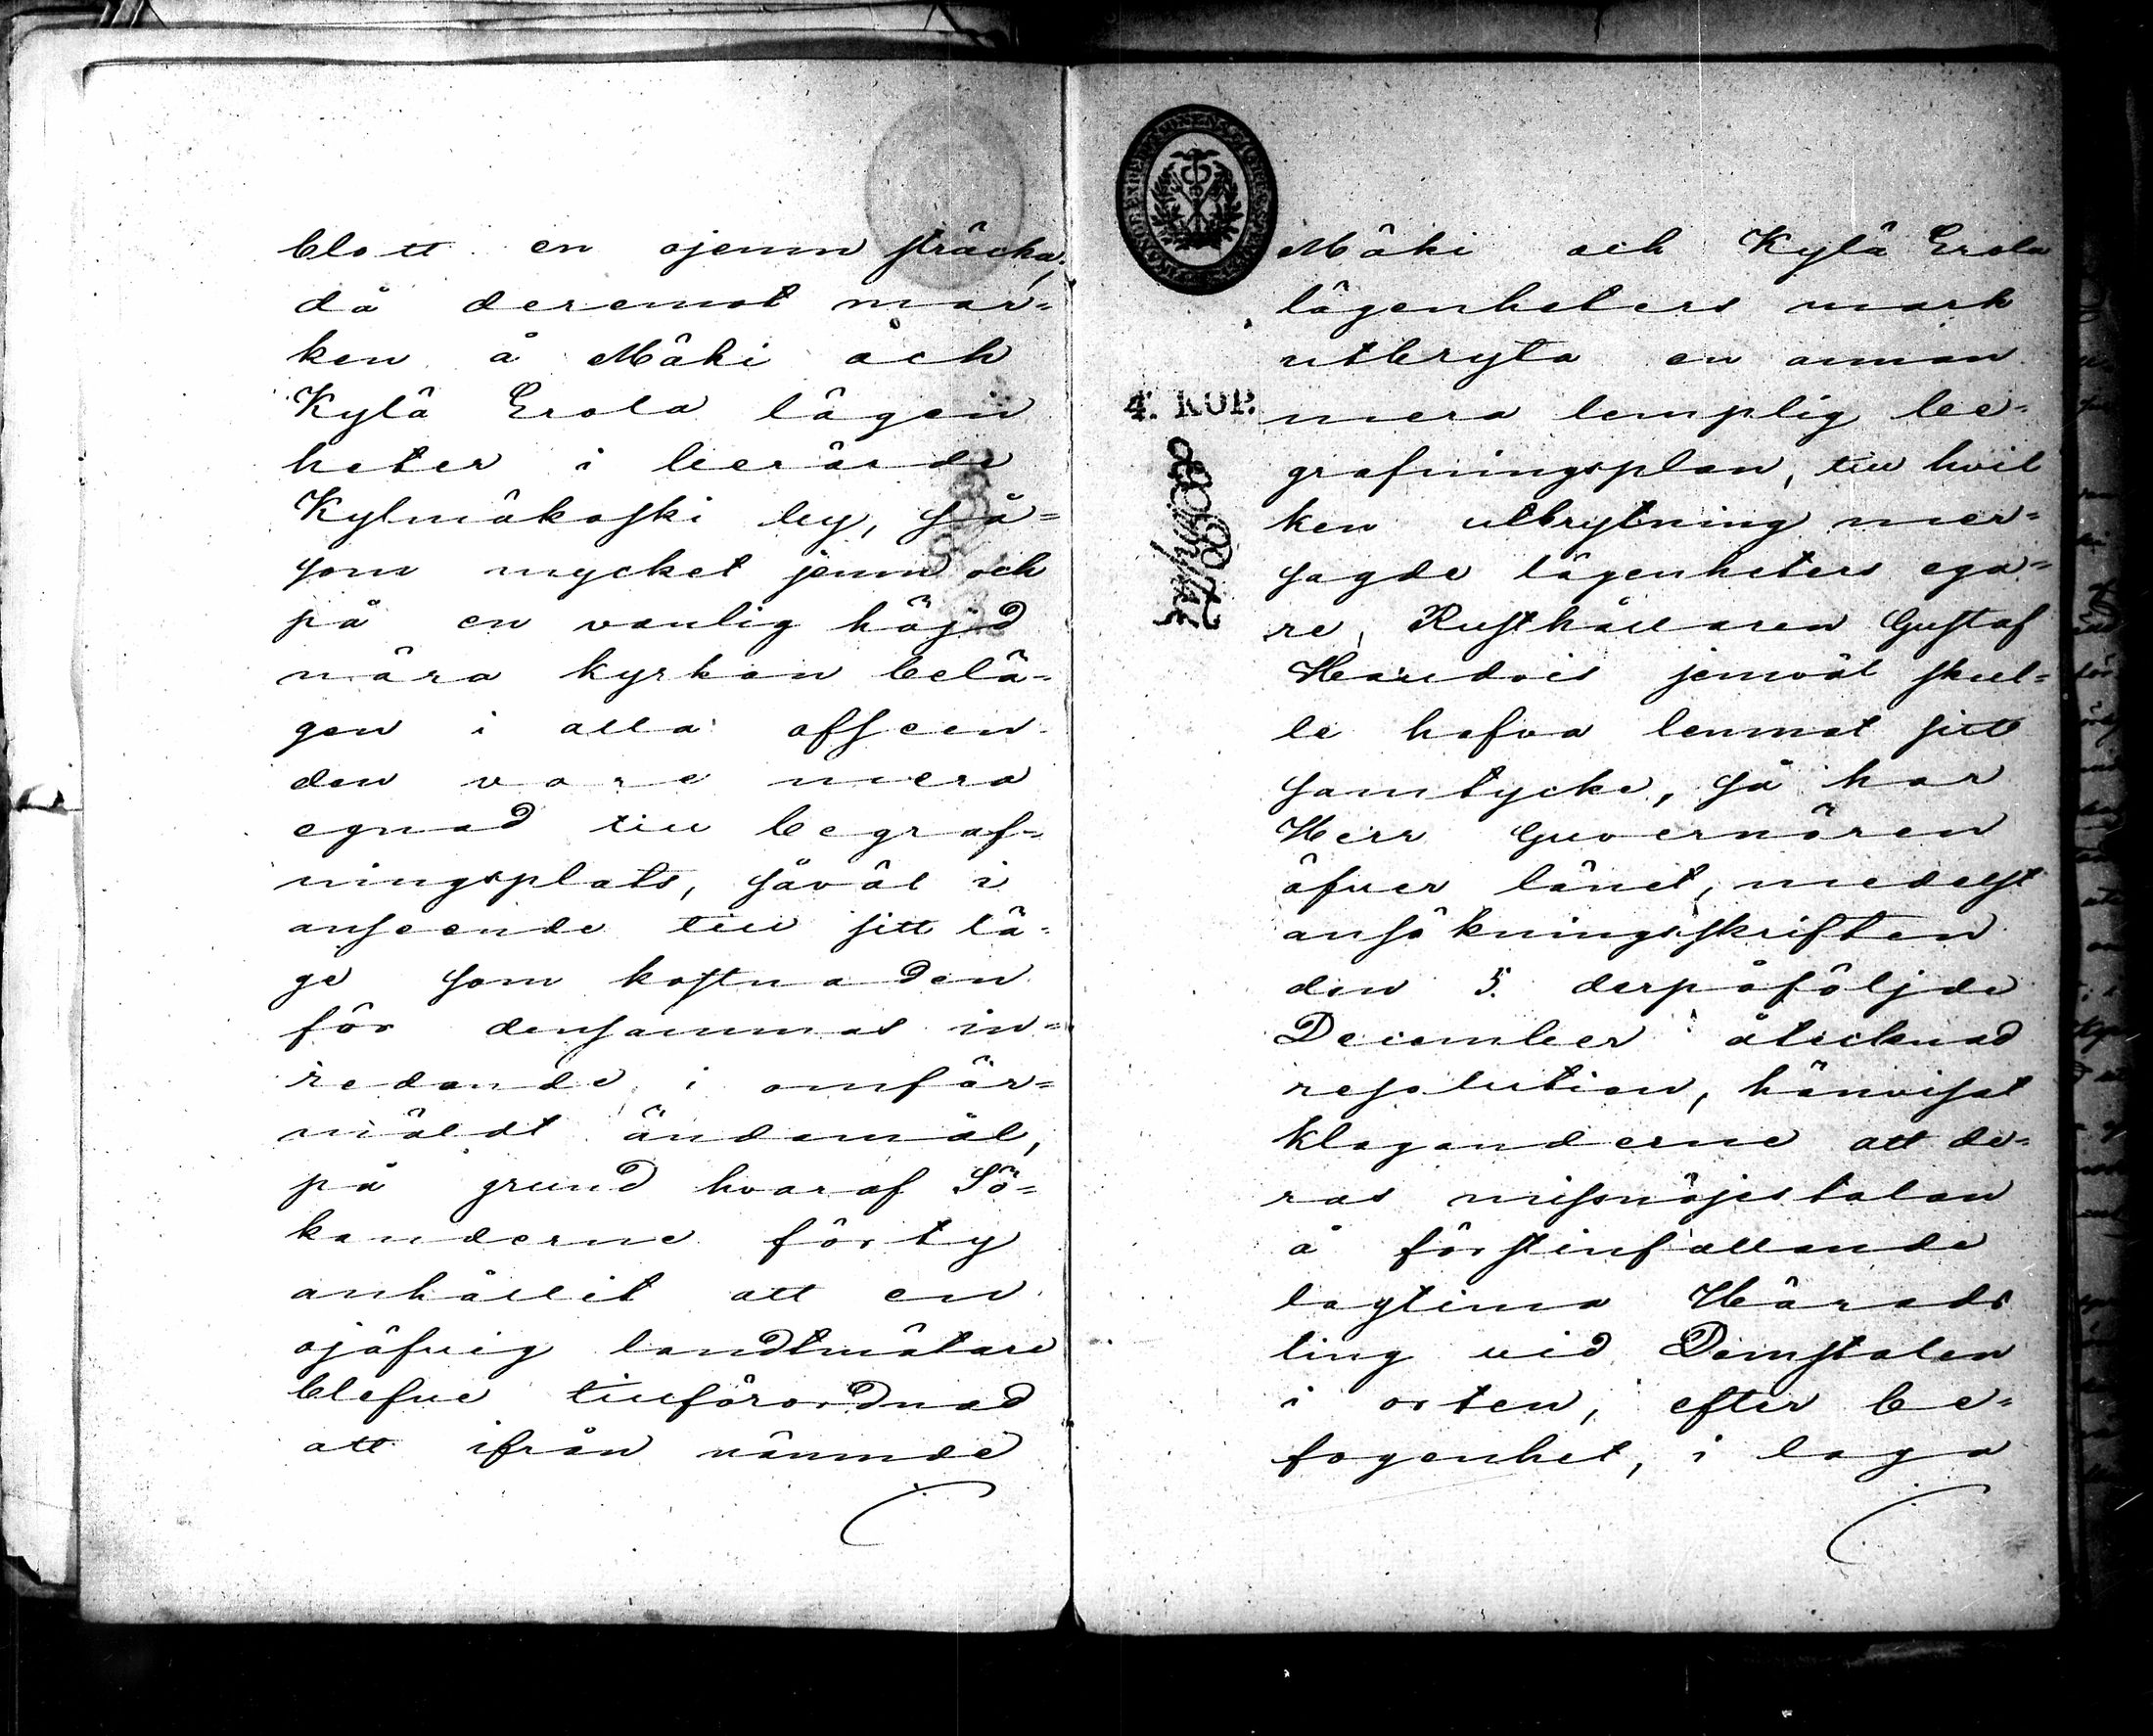 blott en ojemn sträcka,
då deremot mar=
ken å Mäki och
Kylä Erola lägen
heter i berörde
Kylmäkoski by, så=
som mycket jemn och
på en vanlig höjd
nära kyrkan belä-
gen i alla afseen-
den vore mera
egnad till begraf=
ningsplats, såväl i
anseende till sitt lä-
ge som kostnaden
för densammas in=
redande i omför=
mäldt ändamål,
på grund hvaraf Sö=
kanderne förty
anhållit att en
ojäfvig landtmätare
blefve tillförordnad
att ifrån nämnde
4. KOP.
Mäki och Kylä Erola
lägenheters mark
utbryta en annan
mera lemplig be-
grafningsplan, till hvil
ken utbrytning mer=
sagde lägenheters ega=
re, Rusthållaren Gustaf
jemväl skul=
le hafva lemnat sitt
samtycke, så har
Herr Guvernören
öfver länet, medelst
ansökningsskriften
den 5. derpåföljde
December åtecknad
resolution, hänvisat
klaganderne att de-
ras missnöjestalan
å förstinfallande
lagtima Härads
ting vid Domstolen
i orten, efter be=
fogenhet, i laga